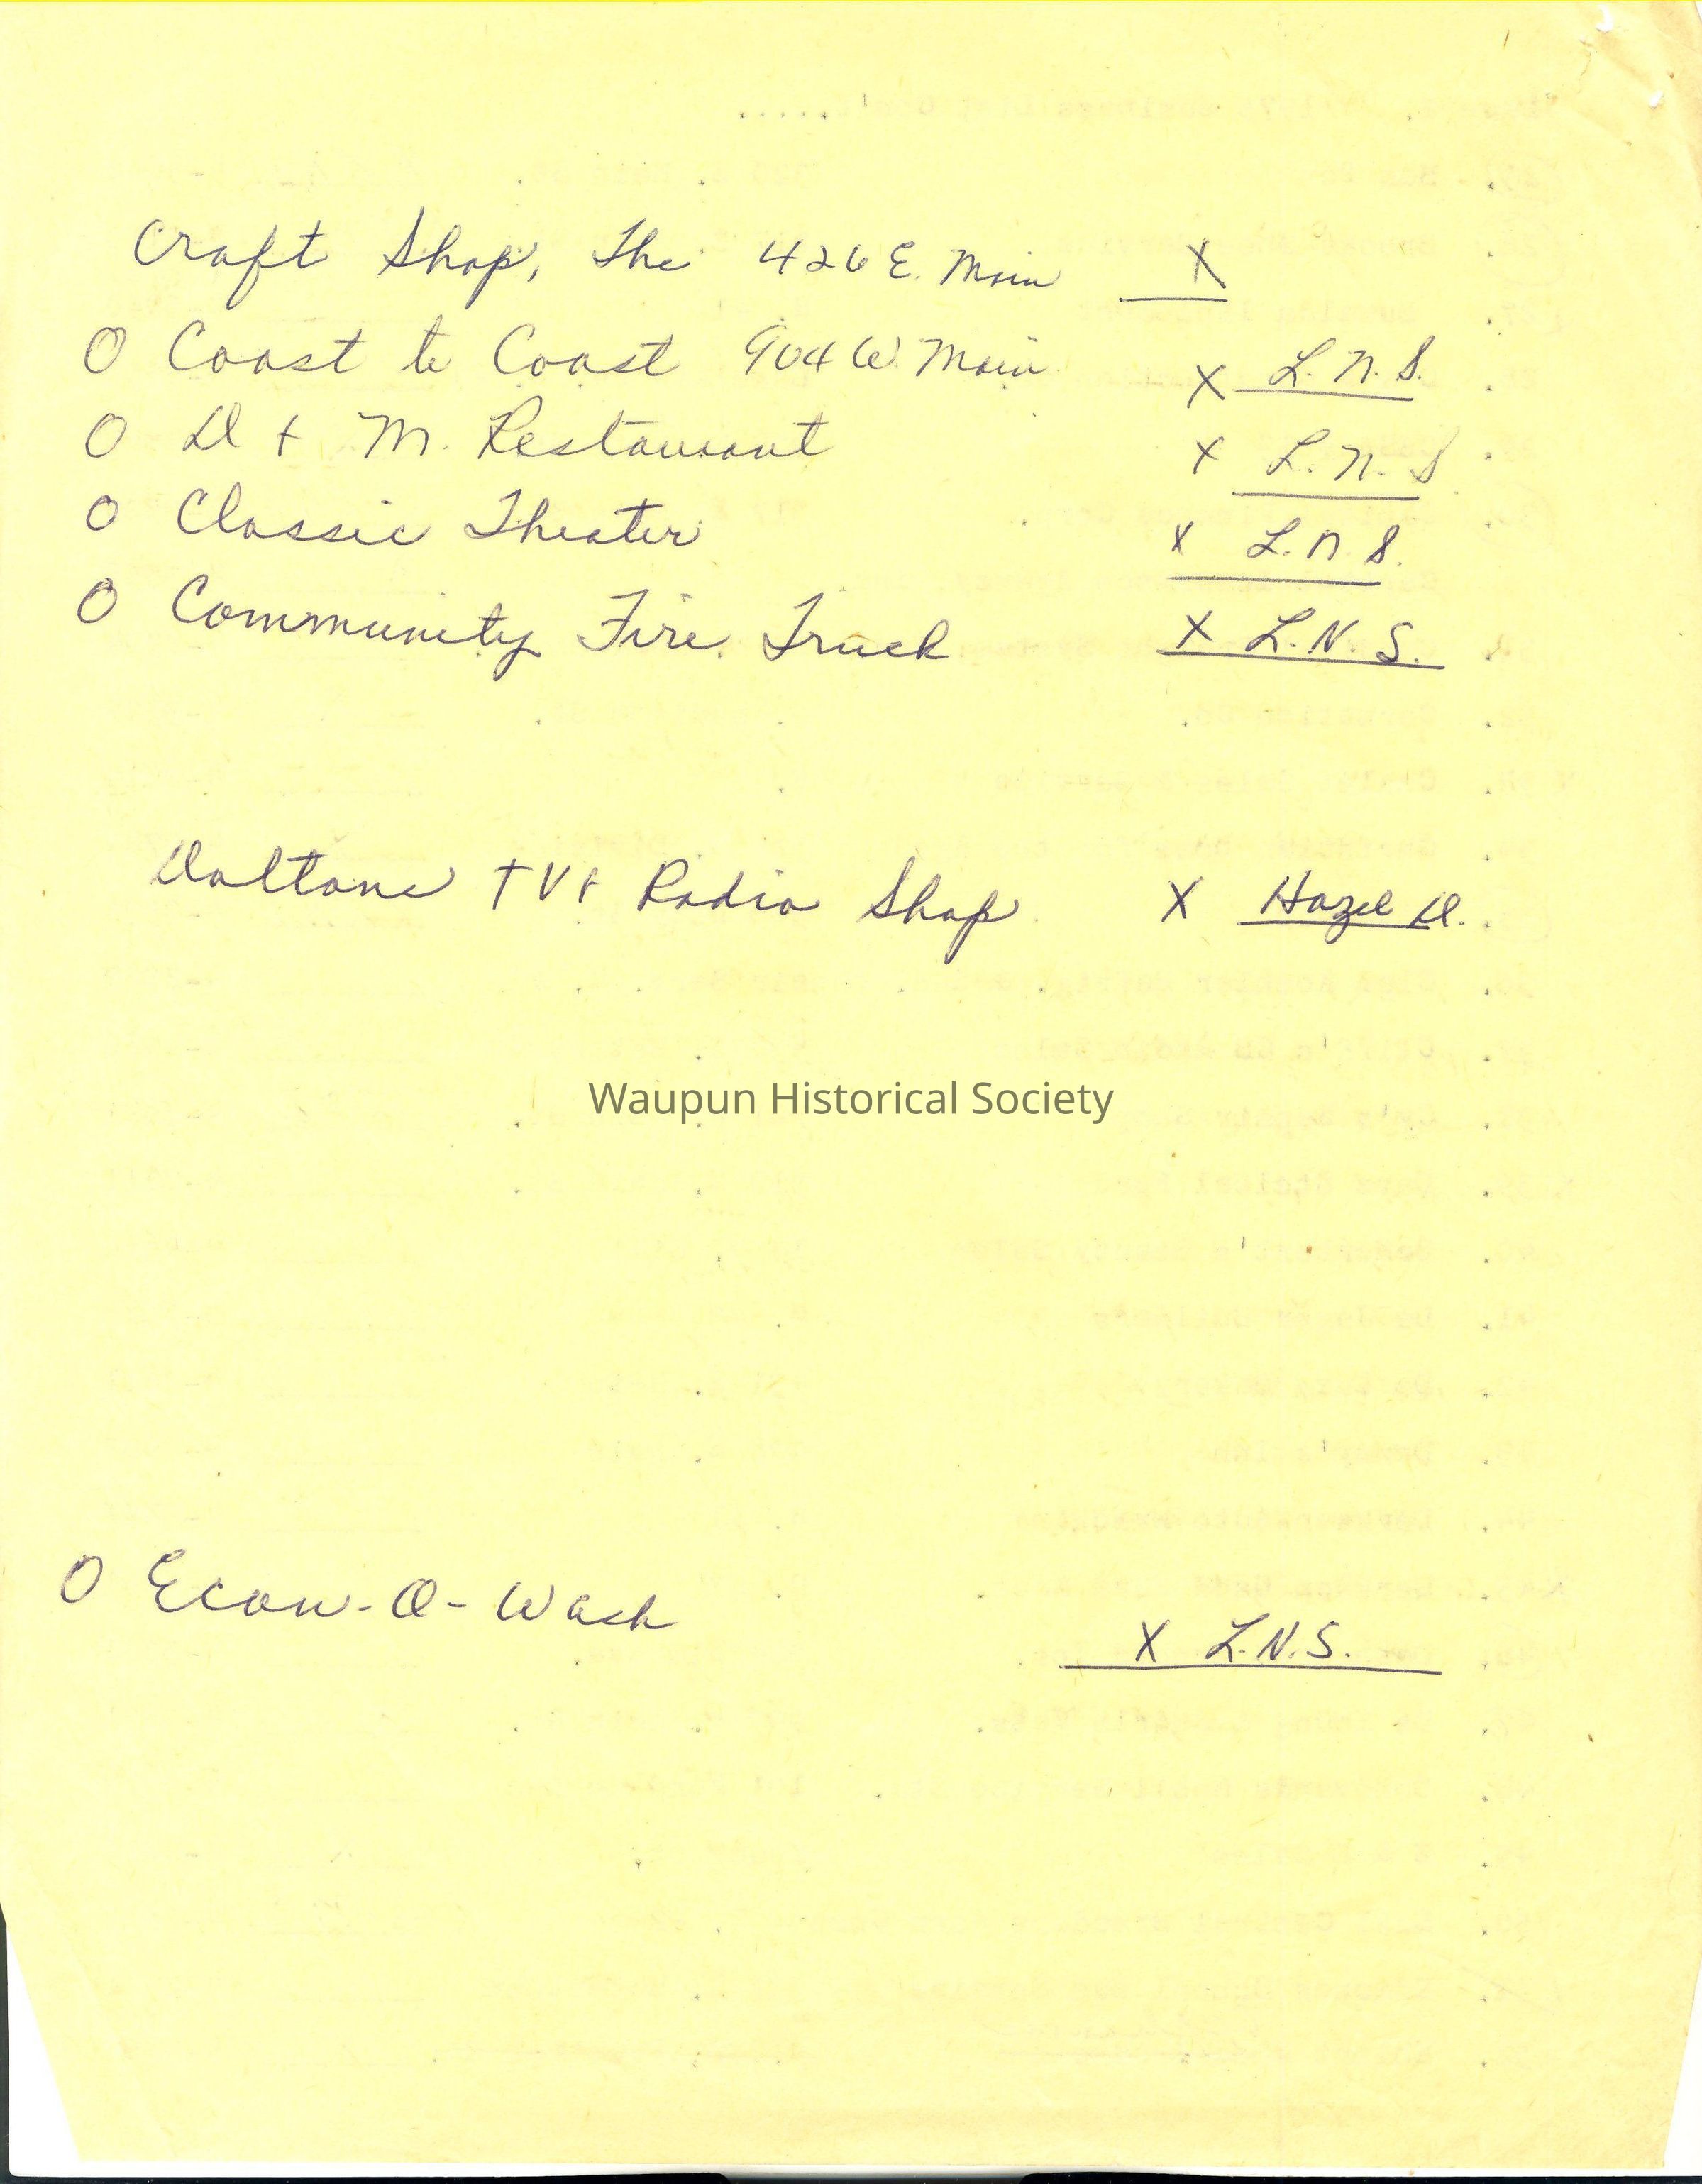 Craft Shop, The 426 E. Main X
O Coast to Coast 904 W. Main X L.N.S.
O D + M. Restaurant X L.N.S
O Classic Theater X L.N.S.
O Community Fire Truck X L.N.S.
Daltons TV + Radio Shop X Hazel D.
Waupun Historical Society
O Econ-O-Wash X L.N.S.